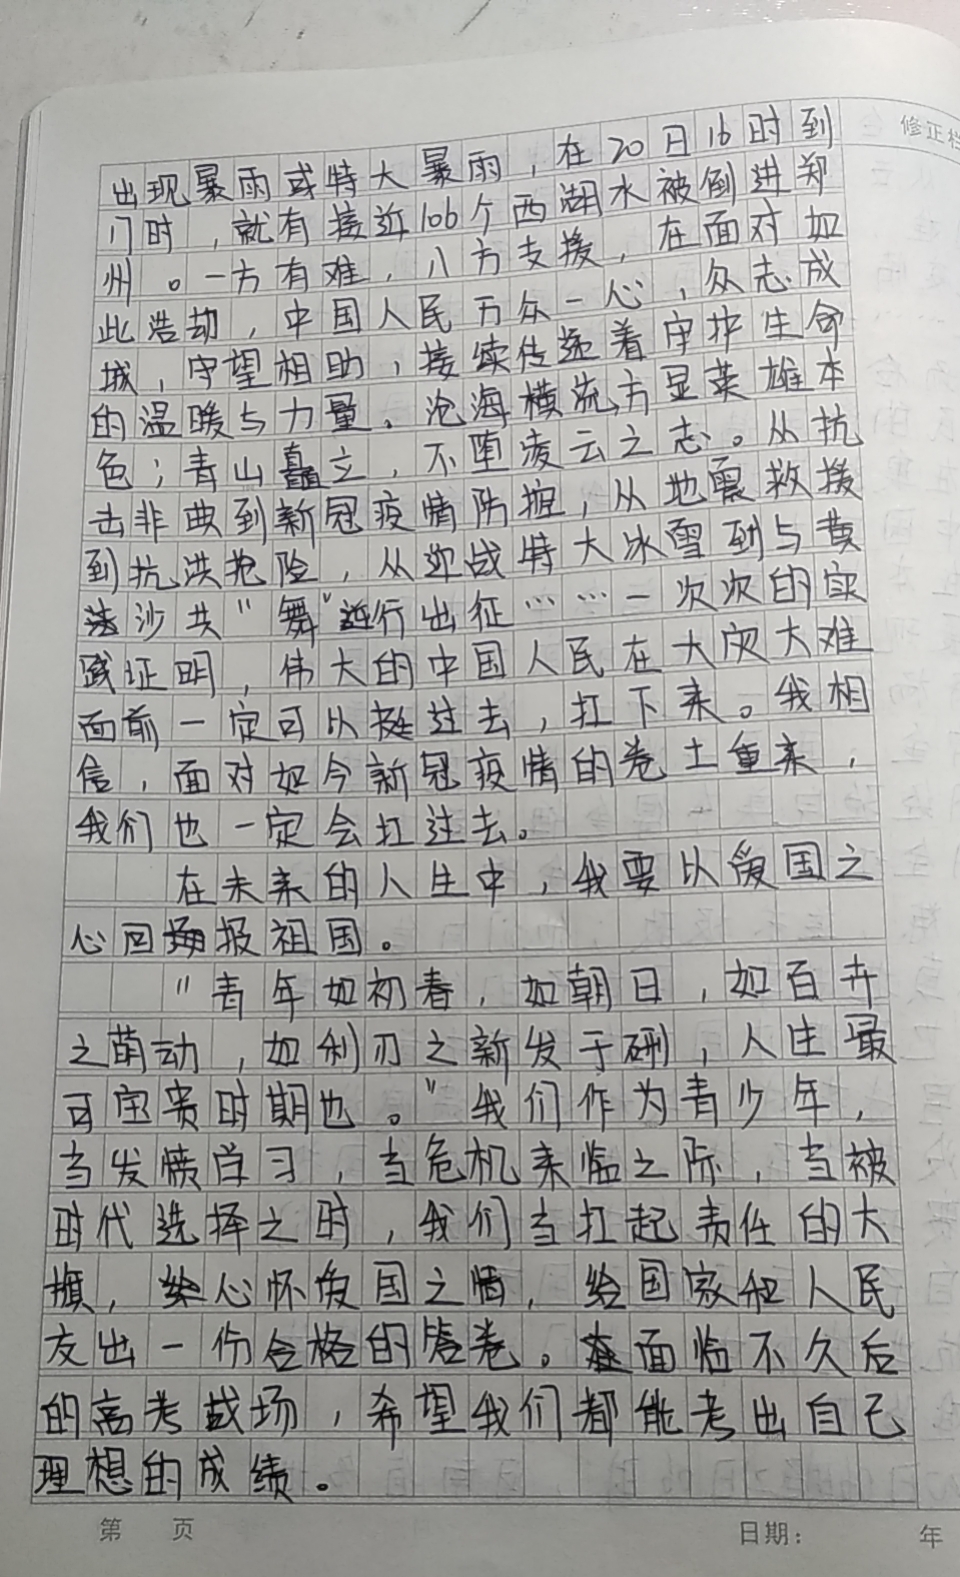 修正栏
出现暴雨或特大暴雨，在20日16时到
17时，就有接近106个西湖水被倒进郑
州。一方有难，八方支援，在面对如
此浩劫，中国人民万众一心，众志成
城，守望相助，接续传递着守护生命
的温暖与力量。沧海横流方显英雄本
色；青山矗立，不堕凌云之志。从抗
击非典到新冠疫情防控，从地震救援
到抗洪抢险，从迎战特大冰雪到与黄
沙共“舞”逆行出征……一次次的实
践证明，伟大的中国人民在大灾大难
面前一定可以挺过去，扛下来。我相
信，面对如今新冠疫情的卷土重来，
我们也一定会扛过去。
在未来的人生中，我要以爱国之
心回报祖国。
“青年如初春，如朝日，如百卉
之萌动，如利刃之新发于硎，人生最
可宝贵时期也。”我们作为青少年，
当发愤学习，当危机来临之际，当被
时代选择之时，我们当扛起责任的大
旗，心怀爱国之情，给国家和人民
交出一份合格的答卷。面临不久后
的高考战场，希望我们都能考出自己
理想的成绩。
第 页 日期： 年